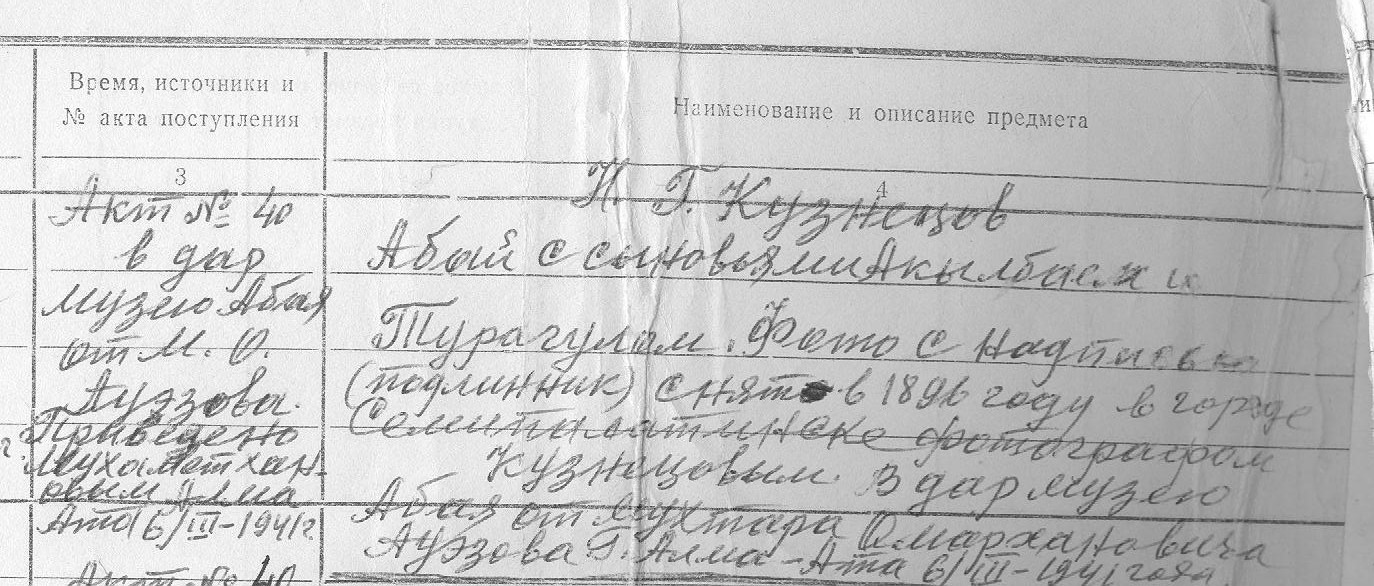 Время, источники и
№ акта поступления
Наименование и описание предмета
3
4
Акт № 40
в дар
музею Абая
от М. О.
Ауэзова.
Приведено
Мухаметхан-
овым Алма
Ата (6) III-1941 г.
Акт № 40
Н. Г. Кузнецов
Абай с сыновьями Акылбаем и
Турагулом. Фото с надписью
(подлинник) снято в 1896 году в городе
Семипалатинске фотографом
Кузнецовым. В дар музею
Абая от Мухтара Омархановича
Ауэзова Г. Алма-Ата 6/III-1941 года